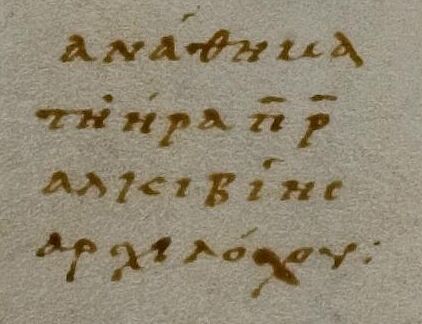 ανάθημα
τῆι ήρα π̄ρ̄
αλκιβίης
αρχιλόχου: